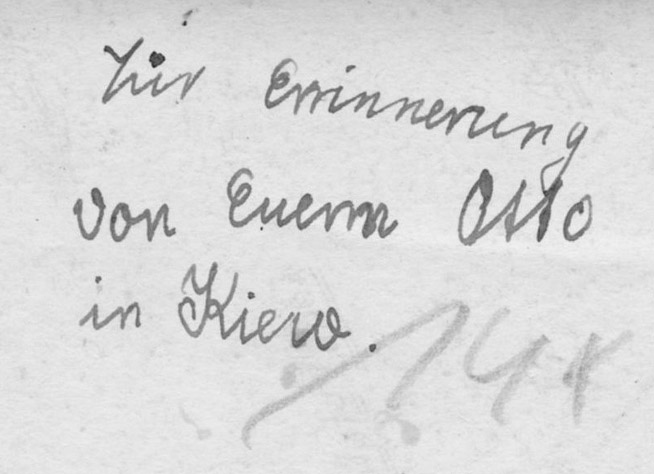 Zur Errinnerung
von Euerm Otto
in Kiew.
14x